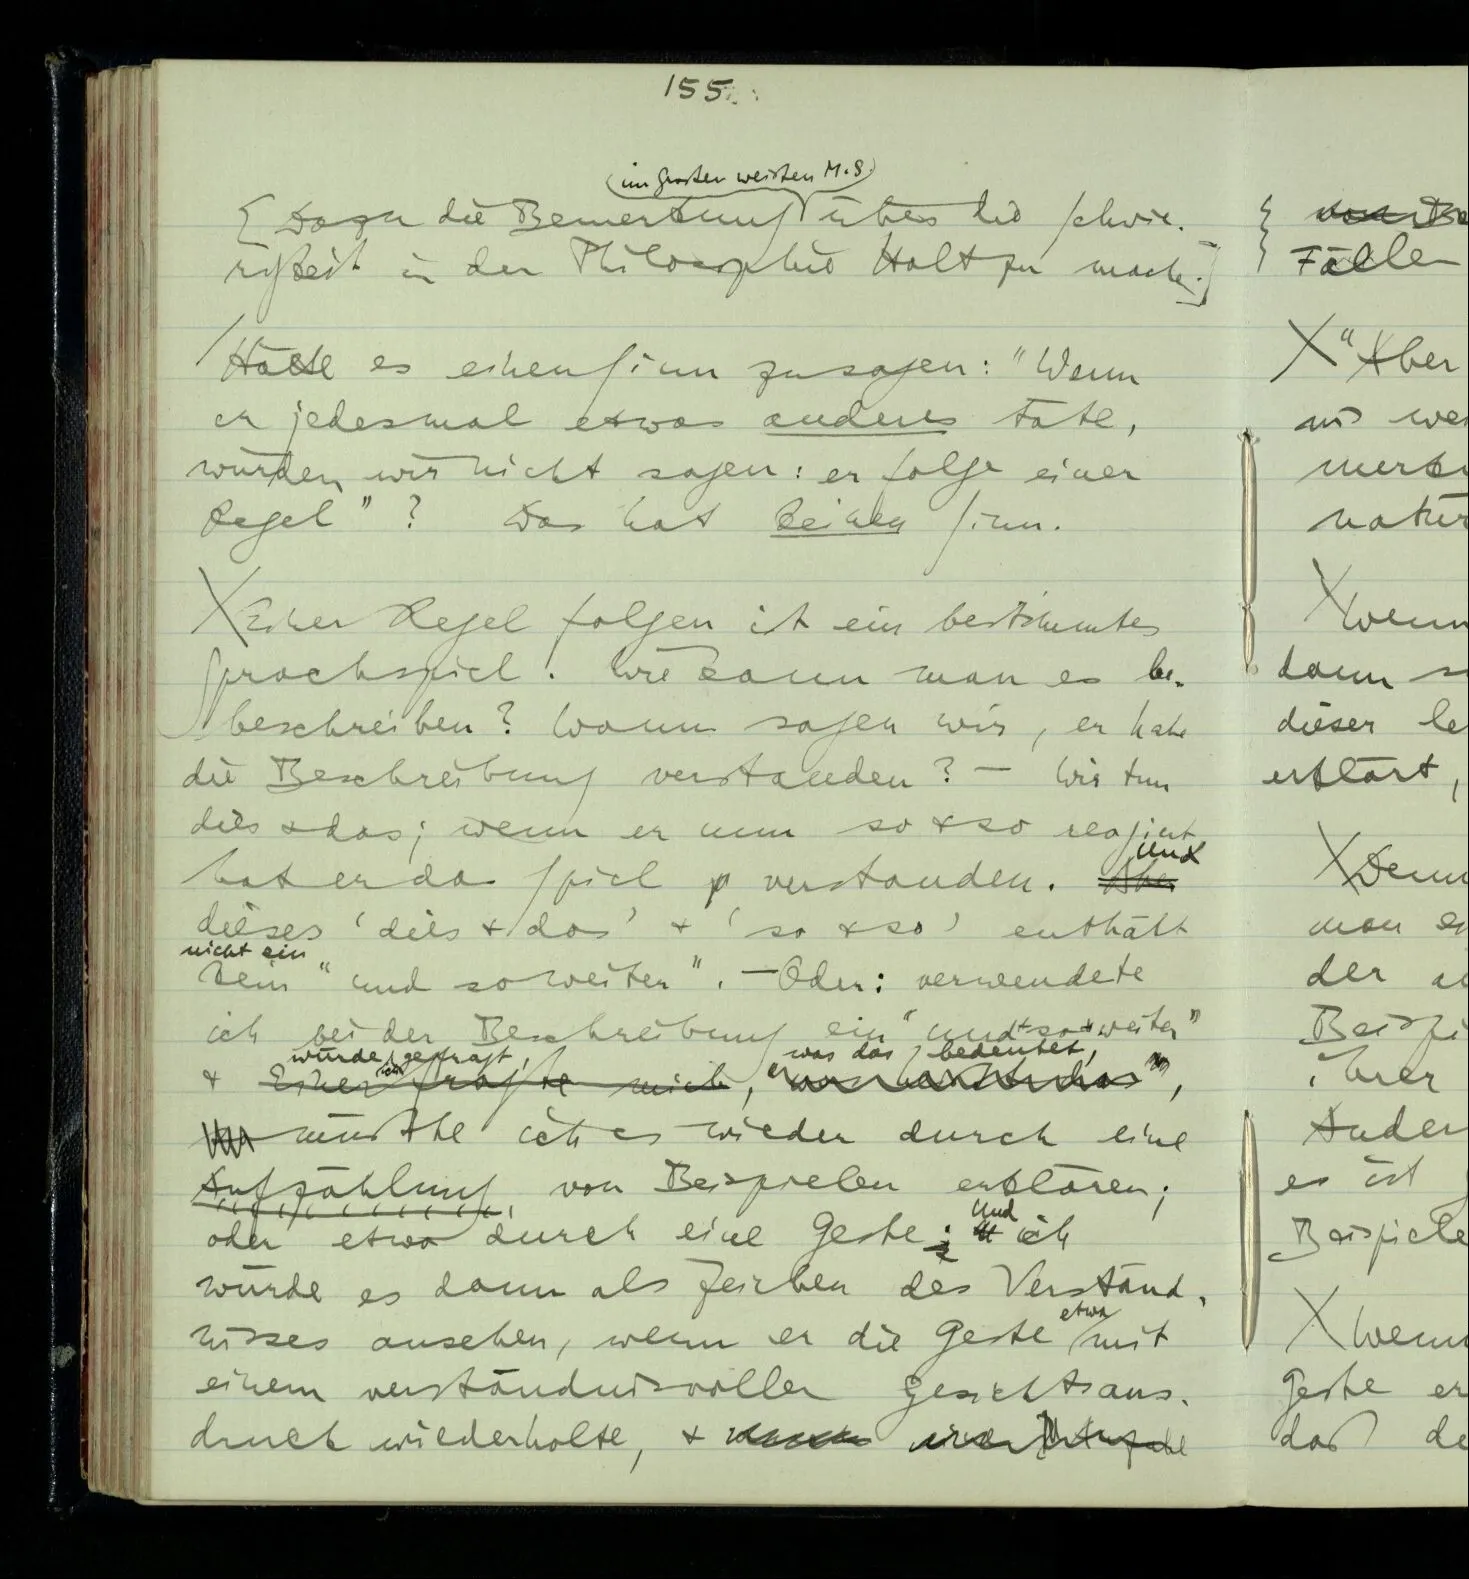 155
(im großen weißen M.S.)
[Dazu die Bemerkung über die Schwie-
rigkeit in der Philosophie Halt zu machen.]
/ Hätte es einen Sinn zu sagen: "Wenn
er jedesmal etwas anderes täte,
würden wir nicht sagen: er folge einer
Regel"? Das hat keinen Sinn.
X Einer Regel folgen ist ein bestimmtes
Sprachspiel. Wie kann man es be-
beschreiben? Wann sagen wir, er habe
die Beschreibung verstanden? – Wir tun
dies & das; wenn er nun so & so reagiert
und
hat er das Spiel verstanden. Aber
dieses 'dies & das' & 'so & so' enthält
nicht ein
kein "und so weiter". – Oder: verwendete
ich bei der Beschreibung ein "und so weiter"
würde ich gefragt, was das bedeutet,
& Einer fragte mich, ,
müßte ich es wieder durch eine
Aufzählung von Beispielen erklären;
Und
oder etwa durch eine Geste; ich
würde es dann als Zeichen des Verständ-
etwa
nisses ansehen, wenn er die Geste mit
einem verständnisvollen Gesichtsaus-
druck wiederholte, &
Fälle
X "Aber
wir
X Wenn
dann
dieser
erklärt,
X Denn
man
der
ihrer
es ist
Beispiele
X Wenn
Geste
daß